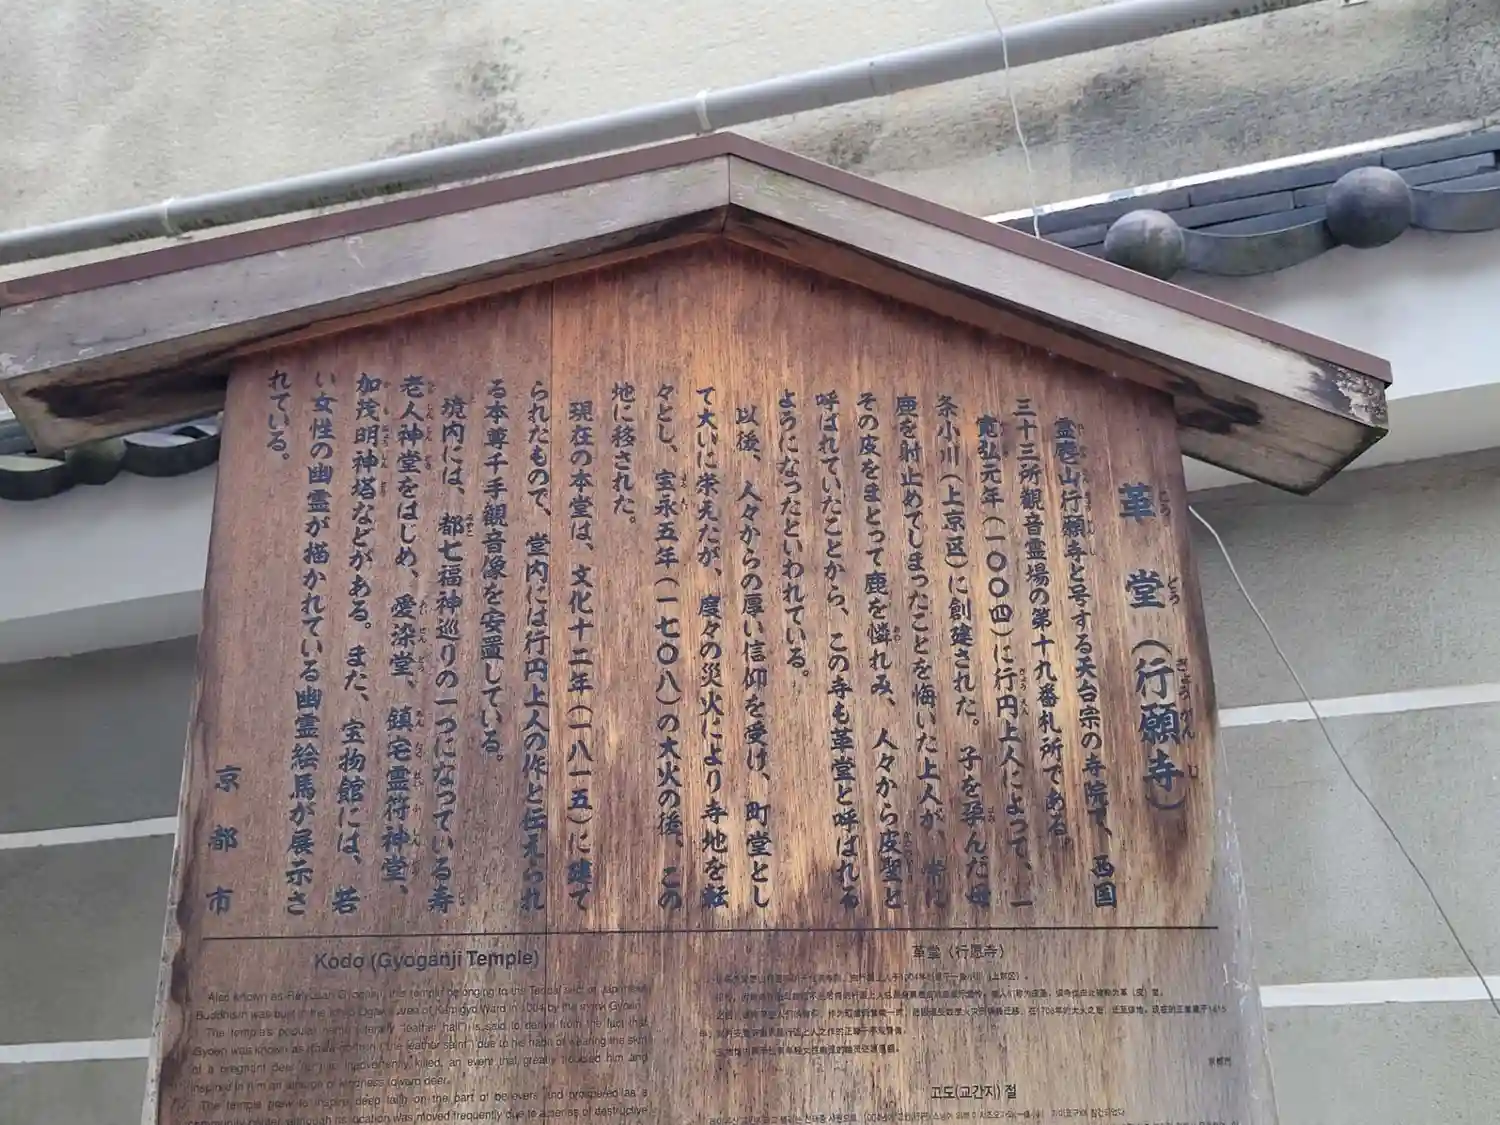 革堂（行願寺）
こう どう ぎょう がん じ
霊麀山行願寺と号する天台宗の寺院で、西国
三十三所観音霊場の第十九番札所である。
寛弘元年（一〇〇四）に行円上人によって、一
条小川（上京区）に創建された。子を孕んだ母
鹿を射止めてしまったことを悔いた上人が、常に
その皮をまとって鹿を憐れみ、人々から皮聖と
呼ばれていたことから、この寺も革堂と呼ばれる
ようになったといわれている。
以後、人々からの厚い信仰を受け、町堂とし
て大いに栄えたが、度々の災火により寺地を転
々とし、宝永五年（一七〇八）の大火の後、この
地に移された。
現在の本堂は、文化十二年（一八一五）に建て
られたもので、堂内には行円上人の作と伝えられ
る本尊千手観音像を安置している。
境内には、都七福神巡りの一つになっている寿
老人神堂をはじめ、愛染堂、鎮宅霊符神堂、
加茂明神塔などがある。また、宝物館には、若
い女性の幽霊が描かれている幽霊絵馬が展示さ
れている。
京都市
Kodo (Gyoganji Temple)
Also known as Reiyusan Gyoganji, this temple belonging to the Tendai sect of Japanese
Buddhism was built in the Ichijo Ogawa area of Kamigyo Ward in 1004 by the monk Gyoen.
The temple's popular name (literally "leather hall") is said to derive from the fact that
Gyoen was known as Kawa-no-hijiri ("the leather saint") due to he habit of wearing the skin
of a pregnant deer he had inadvertently killed, an event that greatly troubled him and
inspired in him an attitude of kindness toward deer.
The temple grew to inspire deep faith on the part of believers and prospered as a
community center, although its location was moved frequently due to a series of destructive
革堂（行愿寺）
京都市
고도(교간지) 절